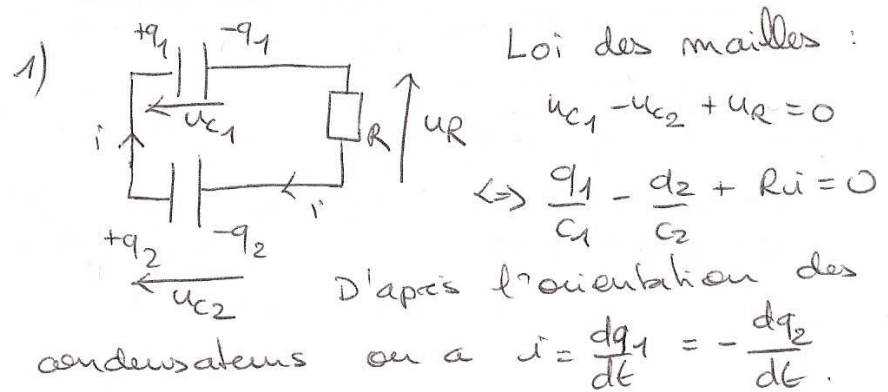 1)
+q₁ -q₁
u_C₁
i
R
u_R
i
+q₂ -q₂
u_C₂
Loi des mailles :
u_C₁ - u_C₂ + u_R = 0
<=> q₁/C₁ - q₂/C₂ + Ri = 0
D'après l'orientation des
condensateurs on a i = dq₁/dt = - dq₂/dt.